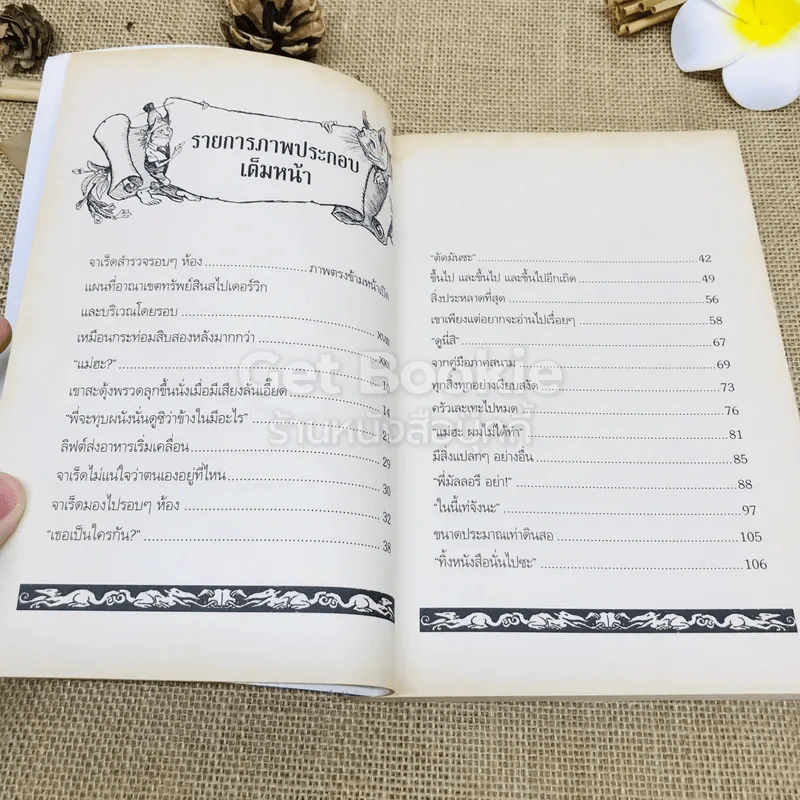 รายการภาพประกอบ
เต็มหน้า
จาเร็ดสำรวจรอบๆ ห้อง ภาพตรงข้ามหน้าเปิด
แผนที่อาณาเขตทรัพย์สินสไปเดอร์วิก
และบริเวณโดยรอบ XVIII
เหมือนกระท่อมสิบสองหลังมากกว่า XXII
"แม่ฮะ?" 10
เขาสะดุ้งพรวดลุกขึ้นนั่งเมื่อมีเสียงลั่นเอี๊ยด 14
"พี่จะทุบผนังนั่นดูซิว่าข้างในมีอะไร" 21
ลิฟต์ส่งอาหารเริ่มเคลื่อน 29
จาเร็ดไม่แน่ใจว่าตนเองอยู่ที่ไหน 30
จาเร็ดมองไปรอบๆ ห้อง 32
"เธอเป็นใครกัน?" 38
"ตัดมันซะ" 42
ขึ้นไป และขึ้นไป และขึ้นไปอีกเถิด 49
สิ่งประหลาดที่สุด 56
เขาเพียงแต่อยากจะอ่านไปเรื่อยๆ 58
"ดูนี่สิ" 67
จากคู่มือภาคสนาม 69
ทุกสิ่งทุกอย่างเงียบสงัด 73
ครัวเละเทะไปหมด 76
"แม่ฮะ ผมไม่ได้ทำ" 81
มีสิ่งแปลกๆ อย่างอื่น 85
"พี่มัลลอรี อย่า!" 88
"ในนี้เท่จังนะ" 97
ขนาดประมาณเท่าดินสอ 105
"ทิ้งหนังสือนั่นไปซะ" 106
Get Bookie
ร้านหนังสือบุ๊คกี้